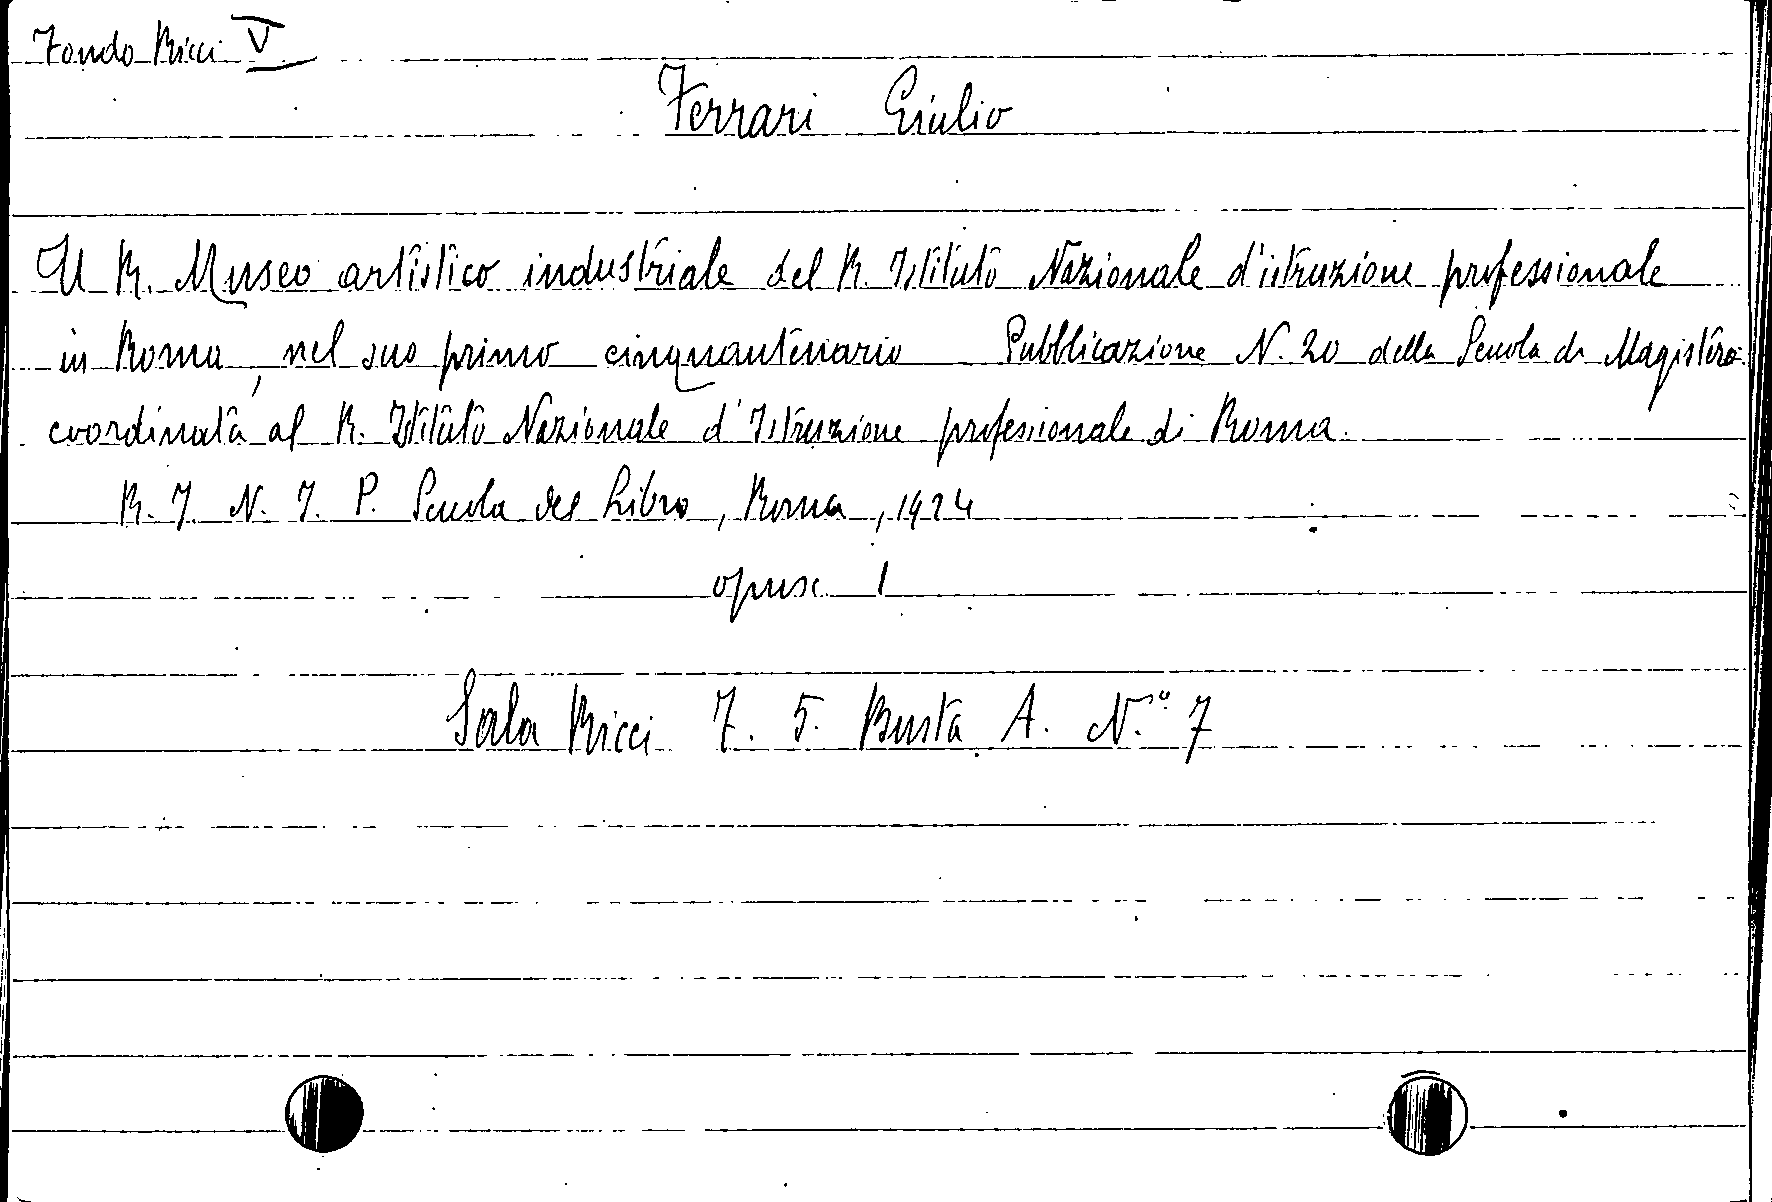 Fondo Ricci V
Ferrari Giulio
Il R. Museo artistico industriale del R. Istituto Nazionale d'istruzione professionale
in Roma, nel suo primo cinquantenario Pubblicazione N. 20 della Scuola di Magistero
coordinata al R. Istituto Nazionale d'Istruzione professionale di Roma.
R. I. N. I. P. Scuola del Libro, Roma, 1924
opusc. 1
Sala Ricci F. 5. Busta A. N.° 7